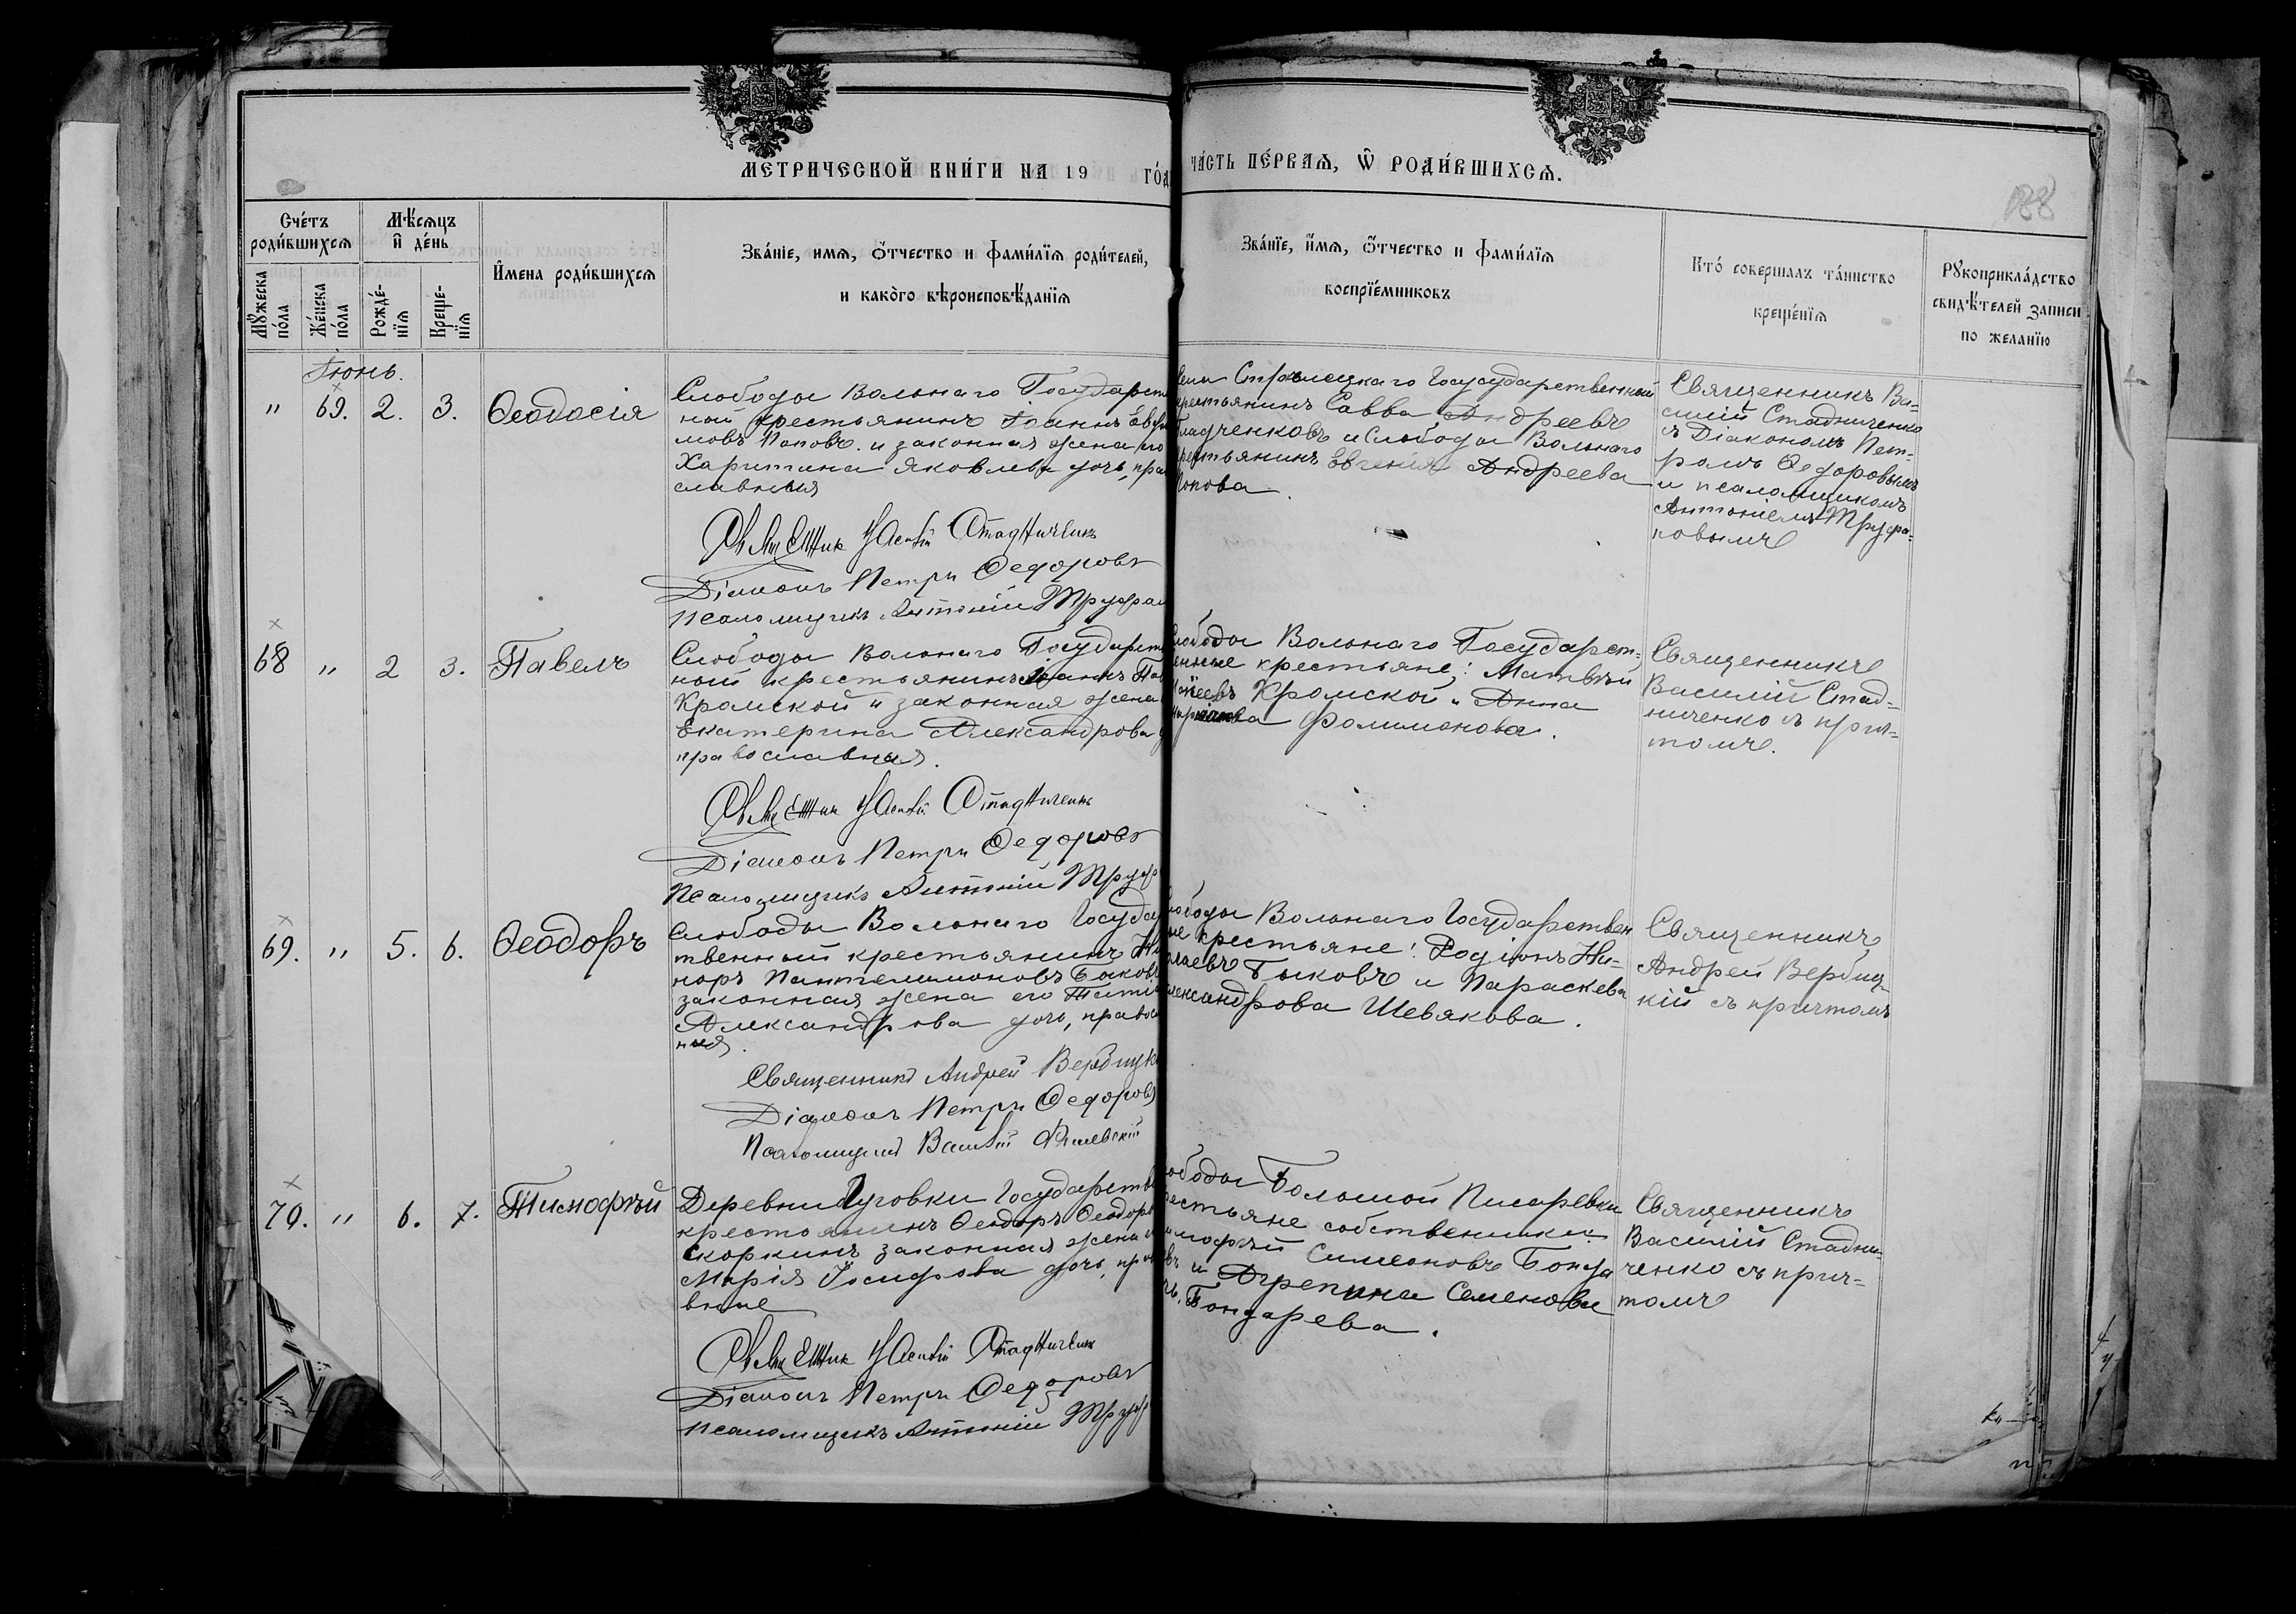 МЕТРИЧЕСКОЙ КНИ́ГИ НА 19 ГО́Д
ЧА́СТЬ ПЕ́РВАѦ, Ѿ РОДИ́ВШИХСѦ.
188
Сче́тъ роди́вшихсѧ
Мѣ́сѧцъ и҆ де́нь
И҆мена роди́вшихсѧ
Зва́нїе, имѧ, ѻ҆́тчество и фами́лїѧ роди́телей,
и како́го вѣроисповѣ́данїѧ
Зва́нїе, и҆́мѧ, ѻ҆́тчество и фами́лїѧ
воспрїе́мниковъ
Кто́ совершалъ та́инство
креще́нїѧ
Рꙋкоприкла́дство
свидѣ́телей записи
по жела́нїю
Мꙋ́жеска по́ла
Же́нска по́ла
Рожде́-нїѧ
Креще-нїѧ
Іюнь.
" 69. 2. 3. Ѳеодосія
Слободы Вольнаго Государст
ный крестьянинъ Іоаннъ Евѳи
мовъ Поповъ и законная жена его
Харитина Яковлева дочь, пра
славныя
Священник Василій Стадниченк
Діаконъ Петръ Ѳедоровъ
Псаломщикъ Антоній Труфан
Стрѣлецкаго Государственный
крестьянинъ Савва Андреевъ
Гладченковъ и Слободы Вольнаго
крестьянинъ Евгенія Андреева
Попова.
Священникъ Ва-
силій Стадниченко
съ Діакономъ Пет-
ромъ Ѳедоровымъ
и псаломщикомъ
Антоніемъ Труфа-
новымъ
68 " 2 3. Павелъ
Слободы Вольнаго Государст
ный крестьянинъ Іоаннъ Пав
Кромской и законная жена
Екатерина Александрова
православныя.
Священник Василій Стадниченк
Діаконъ Петръ Ѳедоровъ
Псаломщикъ Антоній Труф
Слободы Вольнаго Государст-
венные крестьяне: Матвѣй
Кромской и Анна
Филимонова.
Священникъ
Василій Стад-
ниченко съ прич-
томъ.
69. " 5. 6. Ѳеодоръ
Слободы Вольнаго Госуда
твенный крестьянинъ Ни
норъ Пантелимоновъ Быковъ
законная жена его Татіа
Александрова дочь, правос
ныя.
Священникъ Андрей Вербицк
Діаконъ Петръ Ѳедоровъ
Псаломщикъ Василій
Слободы Вольнаго Государствен
ые крестьяне: Родіонъ Ни-
олаевъ Быковъ и Параскева
лександрова Шевякова.
Священникъ
Андрей Вербиц-
кій съ причтомъ
70. " 6. 7. Тимофѣй
Деревни Луговки Государств
крестьянинъ Ѳеодоръ Ѳеодоро
Скоркинъ законная жена е
Марія Іосифова дочь, прав
вные
Священник Василій Стадниченк
Діаконъ Петръ Ѳедоровъ
Псаломщикъ Антоній Труф
ободы Большой Писаревки
рестьяне собственники
имофѣй Симеоновъ Бонда
въ и Агрепина Семенова
Бондарева.
Священникъ
Василій Стадни-
ченко съ прич-
томъ